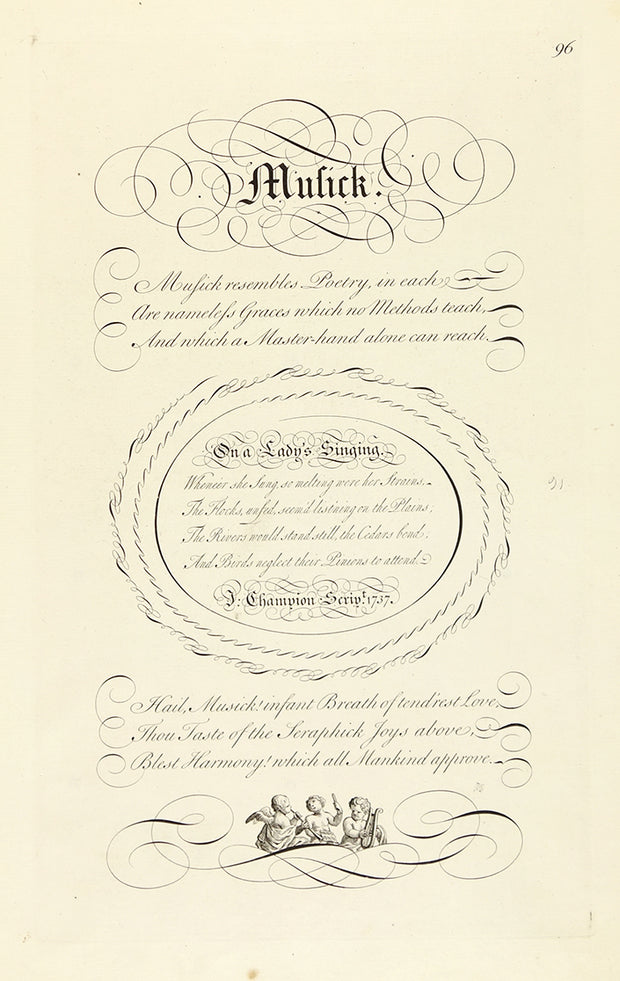 96
Muſick.
Muſick resembles Poetry, in each
Are nameleſs Graces which no Methods teach,
And which a Master-hand alone can reach.
On a Lady's Singing.
Whenear she Sung, so melting were her Strains,
The Flocks, unfed, seem'd list'ning on the Plains;
The Rivers would stand still, the Cedars bend;
And Birds neglect their Pinions to attend.
J: Champion Script. 1737.
Hail, Musick! infant Breath of tend'rest Love,
Thou Taste of the Seraphick Joys above,
Blest Harmony! which all Mankind approve.